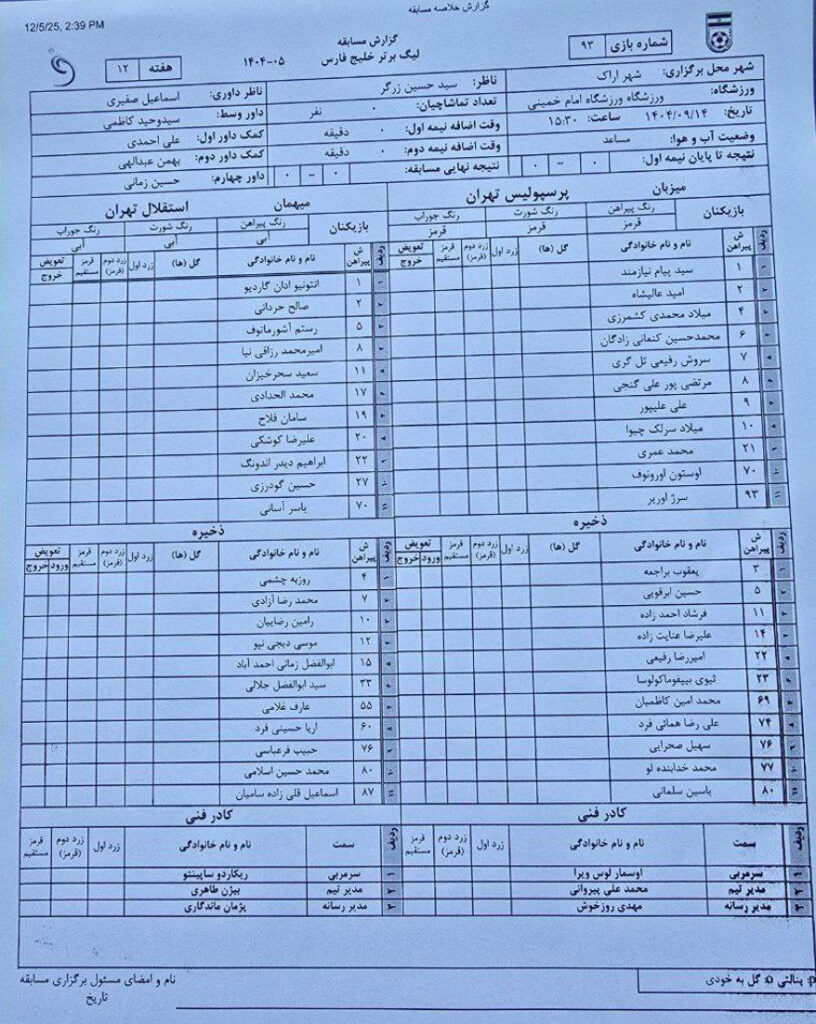 گزارش خلاصه مسابقه
12/5/25, 2:39 PM
گزارش مسابقه
لیگ برتر خلیج فارس
۱۴۰۴-۰۵
شماره بازی ۹۳
هفته ۱۲
شهر محل برگزاری: شهر اراک
ورزشگاه: ورزشگاه ورزشگاه امام خمینی
تاریخ: ۱۴۰۴/۰۹/۱۴ ساعت: ۱۵:۳۰
وضعیت آب و هوا: مساعد
نتیجه تا پایان نیمه اول: ۰ - ۰
ناظر: سید حسین زرگر
تعداد تماشاچیان: ۰ نفر
وقت اضافه نیمه اول: ۰ دقیقه
وقت اضافه نیمه دوم: ۰ دقیقه
نتیجه نهایی مسابقه: ۰ - ۰
ناظر داوری: اسماعیل صفیری
داور وسط: سیدوحید کاظمی
کمک داور اول: علی احمدی
کمک داور دوم: بهمن عبدالهی
داور چهارم: حسین زمانی
میزبان پرسپولیس تهران
بازیکنان رنگ پیراهن رنگ شورت رنگ جوراب
قرمز قرمز قرمز
ردیف ش پیراهن نام و نام خانوادگی گل (ها) زرد اول زرد دوم (قرمز) قرمز مستقیم تعویض خروج
۱ ۱ سید پیام نیازمند
۲ ۲ امید عالیشاه
۳ ۴ میلاد محمدی کشمرزی
۴ ۶ محمدحسین کنعانی زادگان
۵ ۷ سروش رفیعی تل گری
۶ ۸ مرتضی پور علی گنجی
۷ ۹ علی علیپور
۸ ۱۰ میلاد سرلک چیوا
۹ ۲۱ محمد عمری
۱۰ ۷۰ اوستون اورونوف
۱۱ ۹۳ سرژ اوریر
ذخیره
ردیف ش پیراهن نام و نام خانوادگی گل (ها) زرد اول زرد دوم (قرمز) قرمز مستقیم تعویض ورود خروج
۱ ۳ یعقوب براجعه
۲ ۵ حسین ابرقویی
۳ ۱۱ فرشاد احمد زاده
۴ ۱۴ علیرضا عنایت زاده
۵ ۲۲ امیررضا رفیعی
۶ ۲۳ ثیوی بیفوماکولوسا
۷ ۶۹ محمد امین کاظمیان
۸ ۷۴ علی رضا همائی فرد
۹ ۷۶ سهیل صحرایی
۱۰ ۷۷ محمد خدابنده لو
۱۱ ۸۰ یاسین سلمانی
کادر فنی
ردیف سمت نام و نام خانوادگی زرد اول زرد دوم (قرمز) قرمز مستقیم
۱ سرمربی اوسمار لوس ویرا
۲ مدیر تیم محمد علی پیروانی
۳ مدیر رسانه مهدی روزخوش
میهمان استقلال تهران
بازیکنان رنگ پیراهن رنگ شورت رنگ جوراب
آبی آبی آبی
ردیف ش پیراهن نام و نام خانوادگی گل (ها) زرد اول زرد دوم (قرمز) قرمز مستقیم تعویض خروج
۱ ۱ انتونیو ادان گاردیو
۲ ۲ صالح حردانی
۳ ۵ رستم آشورماتوف
۴ ۸ امیرمحمد رزاقی نیا
۵ ۱۱ سعید سحرخیزان
۶ ۱۷ محمد الحدادی
۷ ۱۹ سامان فلاح
۸ ۲۰ علیرضا کوشکی
۹ ۲۲ ابراهیم دیدر اندونگ
۱۰ ۲۷ حسین گودرزی
۱۱ ۷۰ یاسر آسانی
ذخیره
ردیف ش پیراهن نام و نام خانوادگی گل (ها) زرد اول زرد دوم (قرمز) قرمز مستقیم تعویض ورود خروج
۱ ۴ روزبه چشمی
۲ ۷ محمد رضا آزادی
۳ ۱۰ رامین رضاییان
۴ ۱۲ موسی دبجی نیو
۵ ۱۵ ابوالفضل زمانی احمد آباد
۶ ۳۳ سید ابوالفضل جلالی
۷ ۵۵ عارف غلامی
۸ ۶۰ اریا حسینی فرد
۹ ۷۶ حبیب فرعباسی
۱۰ ۸۰ محمد حسین اسلامی
۱۱ ۸۷ اسماعیل قلی زاده سامیان
کادر فنی
ردیف سمت نام و نام خانوادگی زرد اول زرد دوم (قرمز) قرمز مستقیم
۱ سرمربی ریکاردو ساپینتو
۲ مدیر تیم بیژن طاهری
۳ مدیر رسانه پژمان ماندگاری
پنالتی O: گل به خودی
نام و امضای مسئول برگزاری مسابقه
تاریخ